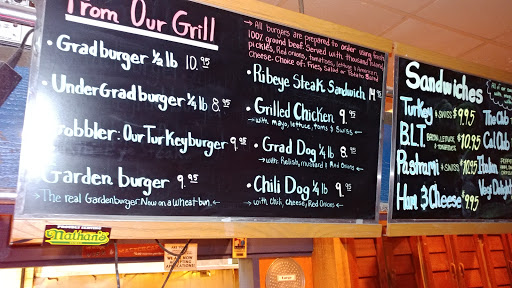 From Our Grill
• Gradburger ½ lb 10.95
• UnderGradburger ¼ lb 8.95
Gobbler: Our Turkeyburger 9.95
Garden burger 9.95
The real Gardenburger. Now on a wheat bun.
→ All burgers are prepared to order using fresh
100% ground beef. Served with thousand island
pickles, Red onions, tomatoes, lettuce & American
Cheese. Choice of: Fries, Salad or Potato Salad
• Ribeye Steak Sandwich 14.95
• Grilled Chicken 9.95
→ with mayo, lettuce, toms & Swiss ←
• Grad Dog ¼ lb 8.95
→ with Relish, mustard & Red Onions
• Chili Dog ¼ lb 9.95
→ with Chili, Cheese, Red Onions ←
Nathan's
Sandwiches
Turkey & SWISS $9.95
BLT BACON, LETTUCE & TOMATOES $10.95
Pastrami & SWISS $10.95
Ham & Cheese $9.95
The Club
Cal Club
Italian
Veggy Delight
WE ARE
NOW
ACCEPTING
APPLICATIONS!